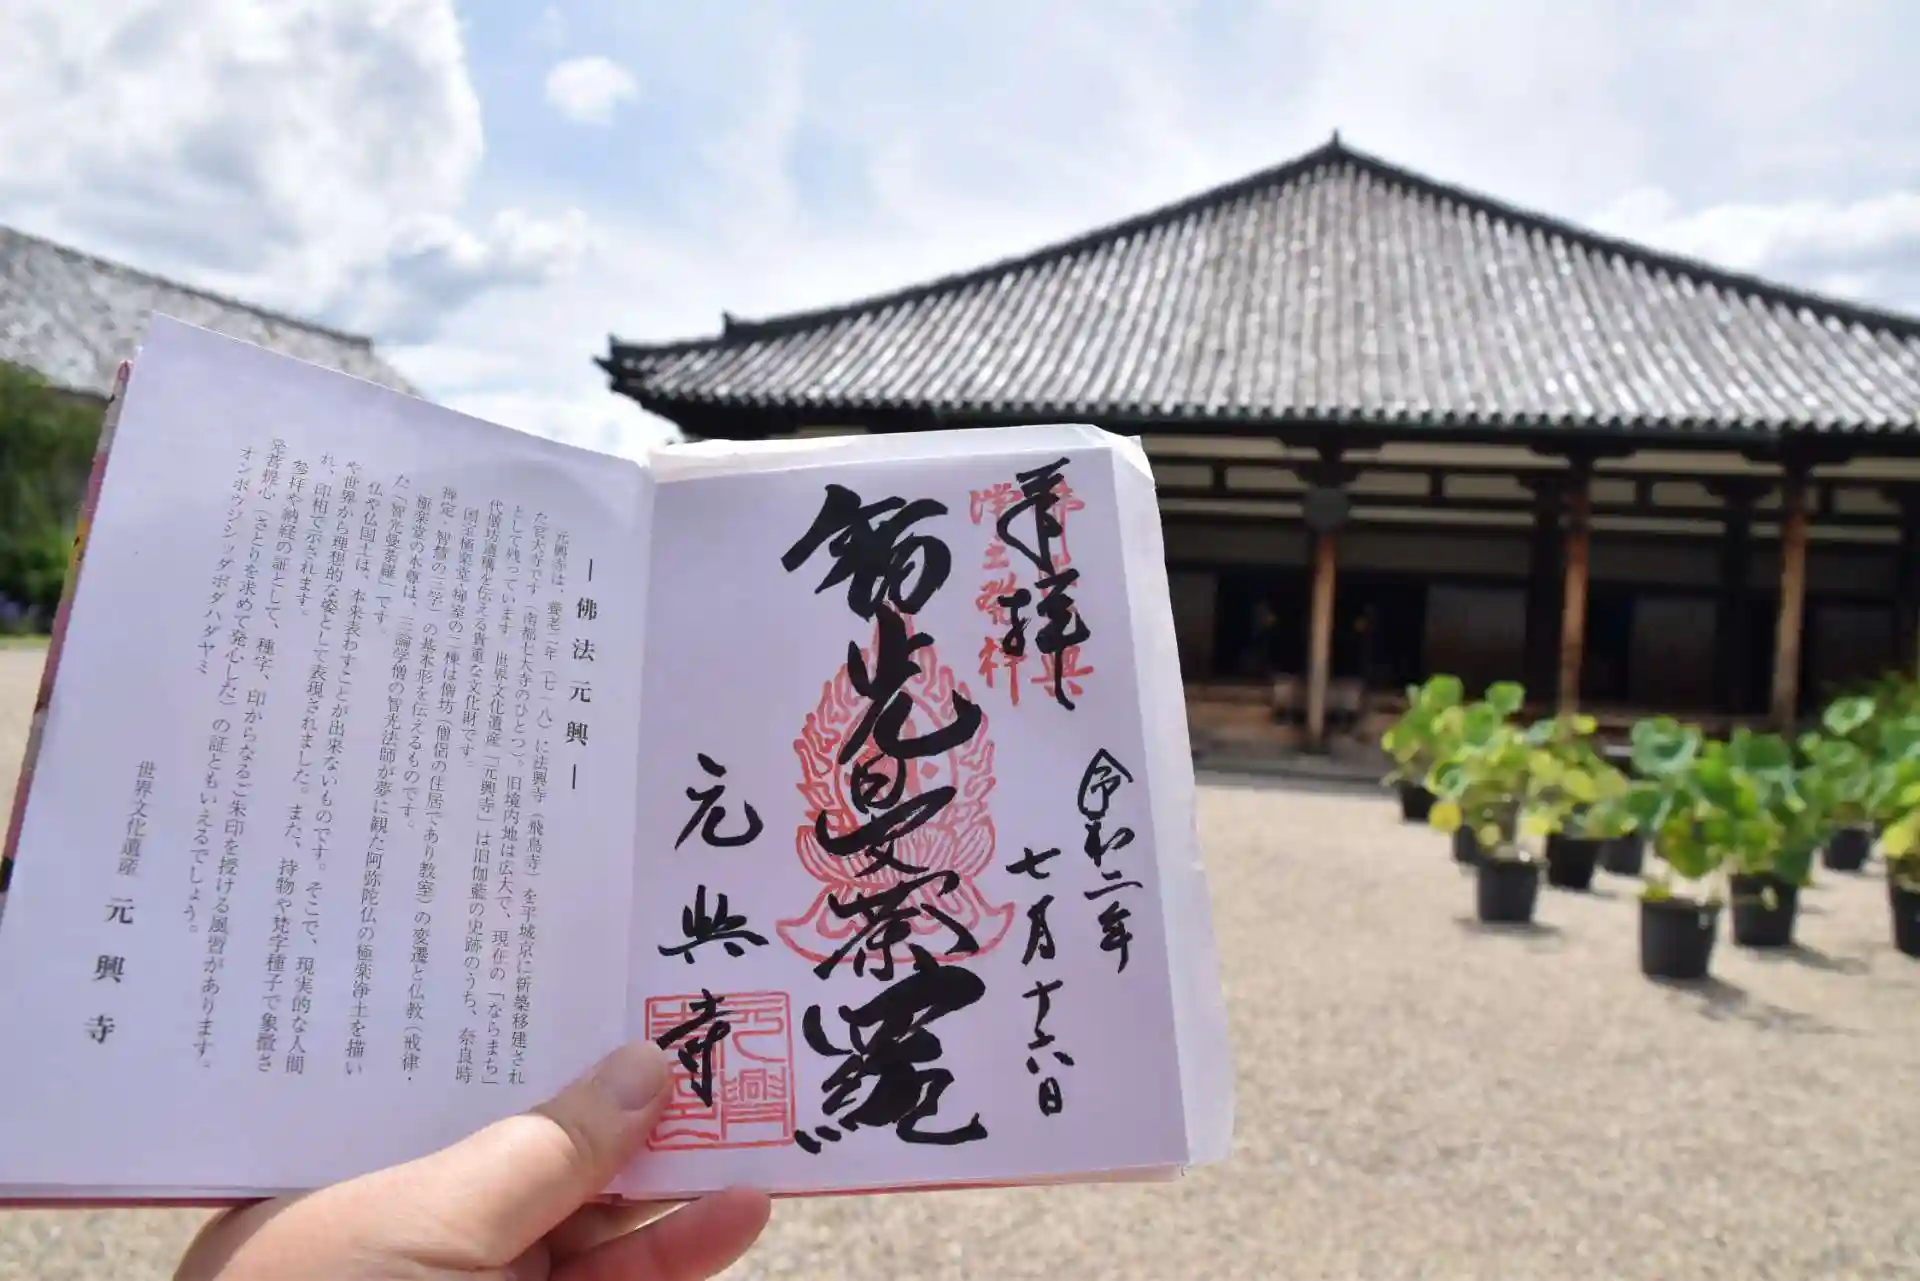 奉拝
佛法元興
浄土発祥
令和二年
七月十六日
智光曼荼羅
元興寺
元興寺
―佛法元興―
元興寺は、養老二年(七一八)に法興寺(飛鳥寺)を平城京に新築移建され
た官大寺です(南都七大寺のひとつ)。旧境内地は広大で、現在の「ならまち」
として残っています。世界文化遺産「元興寺」は旧伽藍の史跡のうち、奈良時
代僧坊遺構を伝える貴重な文化財です。
国宝極楽堂・禅室の二棟は僧坊(僧侶の住居であり教室)の変遷と仏教(戒律・
禅定・智慧の三学)の基本形を伝えるものです。
極楽堂の本尊は、三論学僧の智光法師が夢に観た阿弥陀仏の極楽浄土を描い
た「智光曼荼羅」です。
仏や仏国土は、本来表わすことが出来ないものです。そこで、現実的な人間
や世界から理想的な姿として表現されました。また、持物や梵字種子で象徴さ
れ、印相で示されます。
参拝や納経の証として、種字、印からなるご朱印を授ける風習があります。
発菩提心(さとりを求めて発心した)の証ともいえるでしょう。
オンボウジシッダボダハダヤミ
世界文化遺産 元興寺